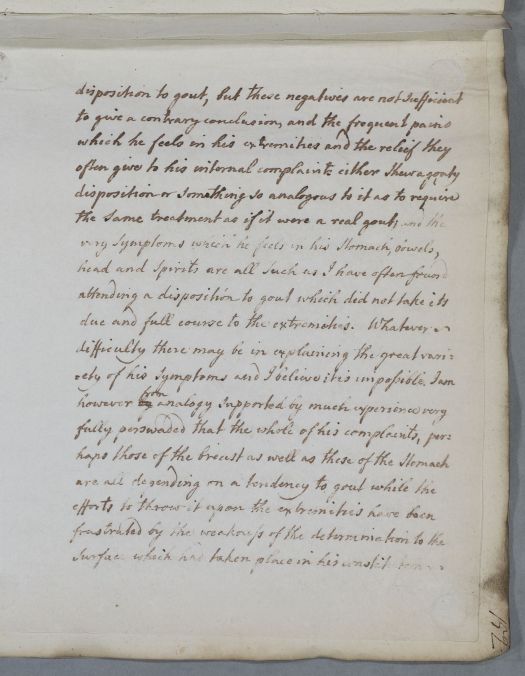 disposition to gout, but these negatives are not Sufficient
to give a contrary conclusion, and the frequent pains
which he feels in his extremities and the relief they
often give to his internal complaints either Shew a gouty
disposition or Something so analogous to it as to require
the same treatment as if it were a real gout; and the
very Symptoms which he feels in his Stomach, bowels,
head and Spirits are all Such as I have often found
attending a disposition to gout which did not take its
due and full course to the extremities. Whatever
difficulty there may be in explaining the great vari-
=ety of his Symptoms and I believe it is impossible I am
however from analogy Supported by much experience very
fully perswaded that the whole of his complaints, per=
haps those of the breast as well as these of the Stomach
are all depending on a tendency to gout while the
efforts to throw it upon the extremities have been
frustrated by the weakness of the determination to the
Surface which had taken place in his constitution